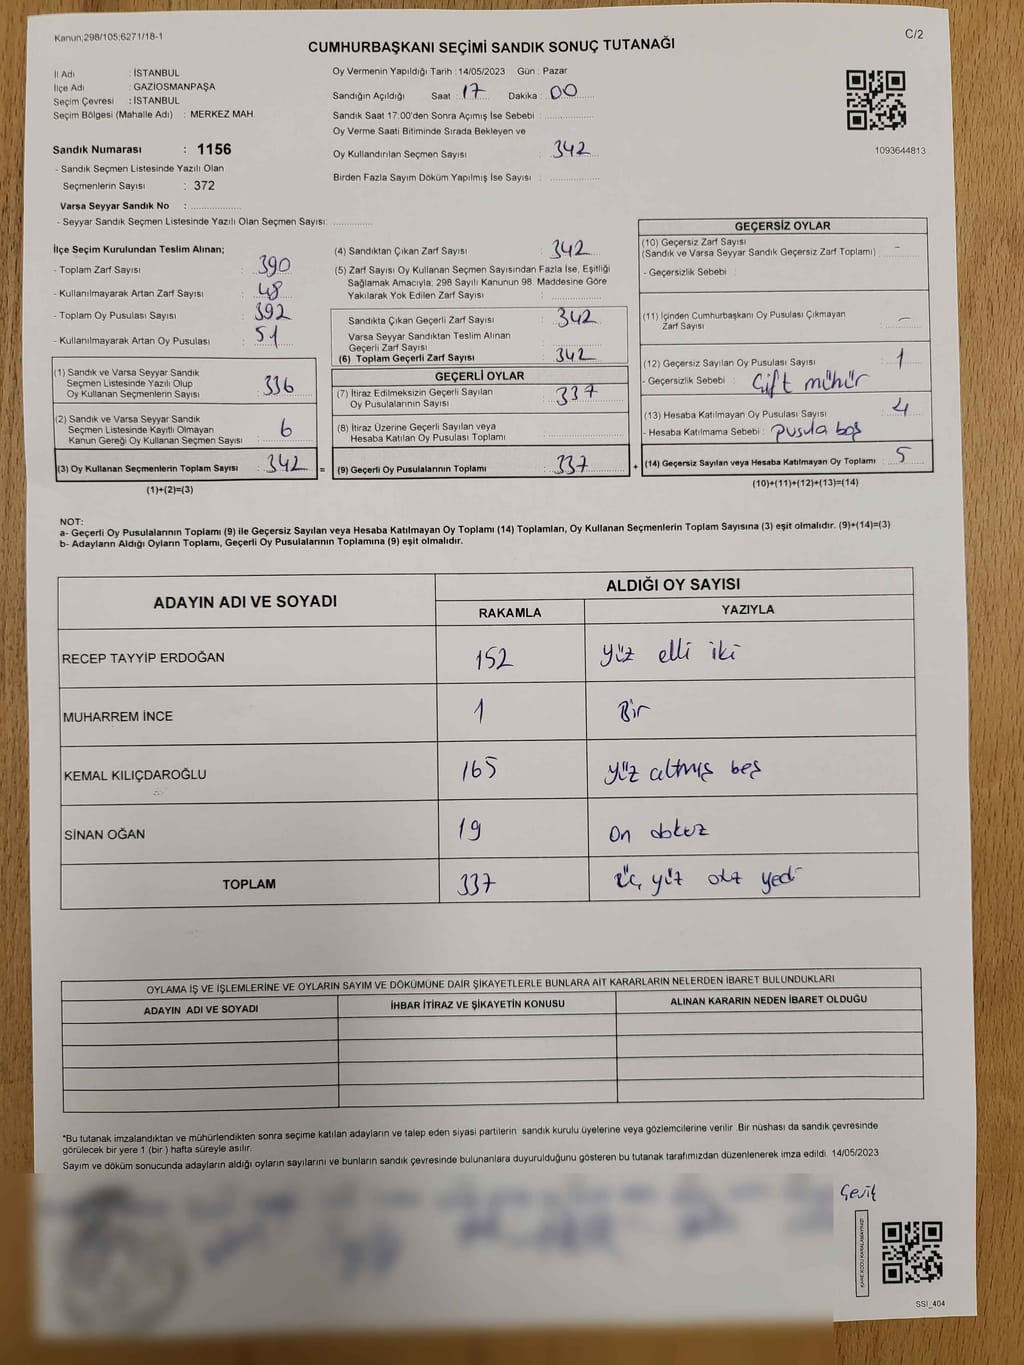 Kanun;298/105;6271/18-1
C/2
CUMHURBAŞKANI SEÇİMİ SANDIK SONUÇ TUTANAĞI
İl Adı : İSTANBUL
İlçe Adı : GAZİOSMANPAŞA
Seçim Çevresi : İSTANBUL
Seçim Bölgesi (Mahalle Adı) : MERKEZ MAH.
Sandık Numarası : 1156
- Sandık Seçmen Listesinde Yazılı Olan
Seçmenlerin Sayısı : 372
Varsa Seyyar Sandık No :
- Seyyar Sandık Seçmen Listesinde Yazılı Olan Seçmen Sayısı:
Oy Vermenin Yapıldığı Tarih : 14/05/2023 Gün : Pazar
Sandığın Açıldığı Saat : 17 Dakika : 00
Sandık Saat 17.00'den Sonra Açımış İse Sebebi :
Oy Verme Saati Bitiminde Sırada Bekleyen ve
Oy Kullandırılan Seçmen Sayısı : 342
Birden Fazla Sayım Döküm Yapılmış İse Sayısı :
1093644813
İlçe Seçim Kurulundan Teslim Alınan;
- Toplam Zarf Sayısı : 390
- Kullanılmayarak Artan Zarf Sayısı : 48
- Toplam Oy Pusulası Sayısı : 392
- Kullanılmayarak Artan Oy Pusulası : 51
(1) Sandık ve Varsa Seyyar Sandık
Seçmen Listesinde Yazılı Olup
Oy Kullanan Seçmenlerin Sayısı : 336
(2) Sandık ve Varsa Seyyar Sandık
Seçmen Listesinde Kayıtlı Olmayan
Kanun Gereği Oy Kullanan Seçmen Sayısı : 6
(3) Oy Kullanan Seçmenlerin Toplam Sayısı : 342
(1)+(2)=(3)
(4) Sandıktan Çıkan Zarf Sayısı : 342
(5) Zarf Sayısı Oy Kullanan Seçmen Sayısından Fazla İse, Eşitliği
Sağlamak Amacıyla; 298 Sayılı Kanunun 98. Maddesine Göre
Yakılarak Yok Edilen Zarf Sayısı :
Sandıkta Çıkan Geçerli Zarf Sayısı : 342
Varsa Seyyar Sandıktan Teslim Alınan
Geçerli Zarf Sayısı :
(6) Toplam Geçerli Zarf Sayısı : 342
GEÇERLİ OYLAR
(7) İtiraz Edilmeksizin Geçerli Sayılan
Oy Pusulalarının Sayısı : 337
(8) İtiraz Üzerine Geçerli Sayılan veya
Hesaba Katılan Oy Pusulası Toplamı :
= (9) Geçerli Oy Pusulalarının Toplamı : 337
GEÇERSİZ OYLAR
(10) Geçersiz Zarf Sayısı
(Sandık ve Varsa Seyyar Sandık Geçersiz Zarf Toplamı) : -
- Geçersizlik Sebebi :
(11) İçinden Cumhurbaşkanı Oy Pusulası Çıkmayan
Zarf Sayısı : -
(12) Geçersiz Sayılan Oy Pusulası Sayısı : 1
- Geçersizlik Sebebi : Çift mühür
(13) Hesaba Katılmayan Oy Pusulası Sayısı : 4
- Hesaba Katılmama Sebebi : pusula boş
+ (14) Geçersiz Sayılan veya Hesaba Katılmayan Oy Toplamı : 5
(10)+(11)+(12)+(13)=(14)
NOT:
a- Geçerli Oy Pusulalarının Toplamı (9) ile Geçersiz Sayılan veya Hesaba Katılmayan Oy Toplamı (14) Toplamları, Oy Kullanan Seçmenlerin Toplam Sayısına (3) eşit olmalıdır. (9)+(14)=(3)
b- Adayların Aldığı Oyların Toplamı, Geçerli Oy Pusulalarının Toplamına (9) eşit olmalıdır.
ADAYIN ADI VE SOYADI
ALDIĞI OY SAYISI
RAKAMLA YAZIYLA
RECEP TAYYİP ERDOĞAN 152 yüz elli iki
MUHARREM İNCE 1 Bir
KEMAL KILIÇDAROĞLU 165 yüz altmış beş
SİNAN OĞAN 19 On dokuz
TOPLAM 337 üç yüz otz yedi
OYLAMA İŞ VE İŞLEMLERİNE VE OYLARIN SAYIM VE DÖKÜMÜNE DAİR ŞİKAYETLERLE BUNLARA AİT KARARLARIN NELERDEN İBARET BULUNDUKLARI
ADAYIN ADI VE SOYADI İHBAR İTİRAZ VE ŞİKAYETİN KONUSU ALINAN KARARIN NEDEN İBARET OLDUĞU
*Bu tutanak imzalandıktan ve mühürlendikten sonra seçime katılan adayların ve talep eden siyasi partilerin sandık kurulu üyelerine veya gözlemcilerine verilir. Bir nüshası da sandık çevresinde
görülecek bir yere 1 (bir ) hafta süreyle asılır.
Sayım ve döküm sonucunda adayların aldığı oyların sayılarını ve bunların sandık çevresinde bulunanlara duyurulduğunu gösteren bu tutanak tarafımızdan düzenlenerek imza edildi. 14/05/2023
KARE KODU KARALAMAYINIZ!
SSI_404